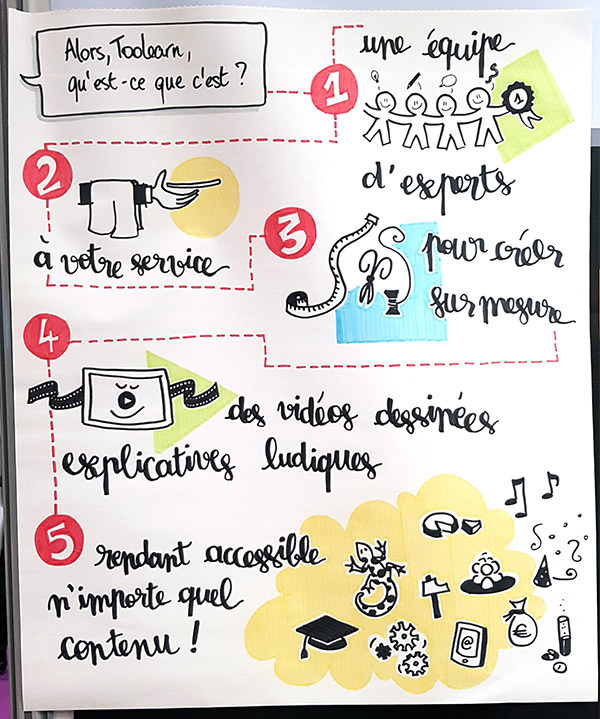 Alors, Toolearn,
qu'est-ce que c'est ?
1
une équipe
1
d'experts
2
à votre service
3
pour créer
sur mesure
4
des vidéos dessinées
explicatives ludiques
5
rendant accessible
n'importe quel
contenu !
@
€